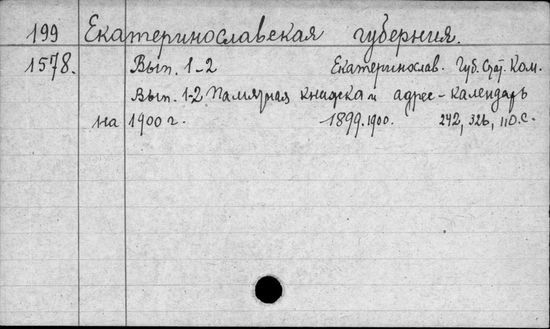 199 Екатеринославская губерния.
1578. Вып. 1-2 Екатеринослав. Губ. Стат. Ком.
Вып. 1-2. Памятная книжка и адрес-календарь
на 1900 г. 1899, 1900. 242, 326, 110 с.